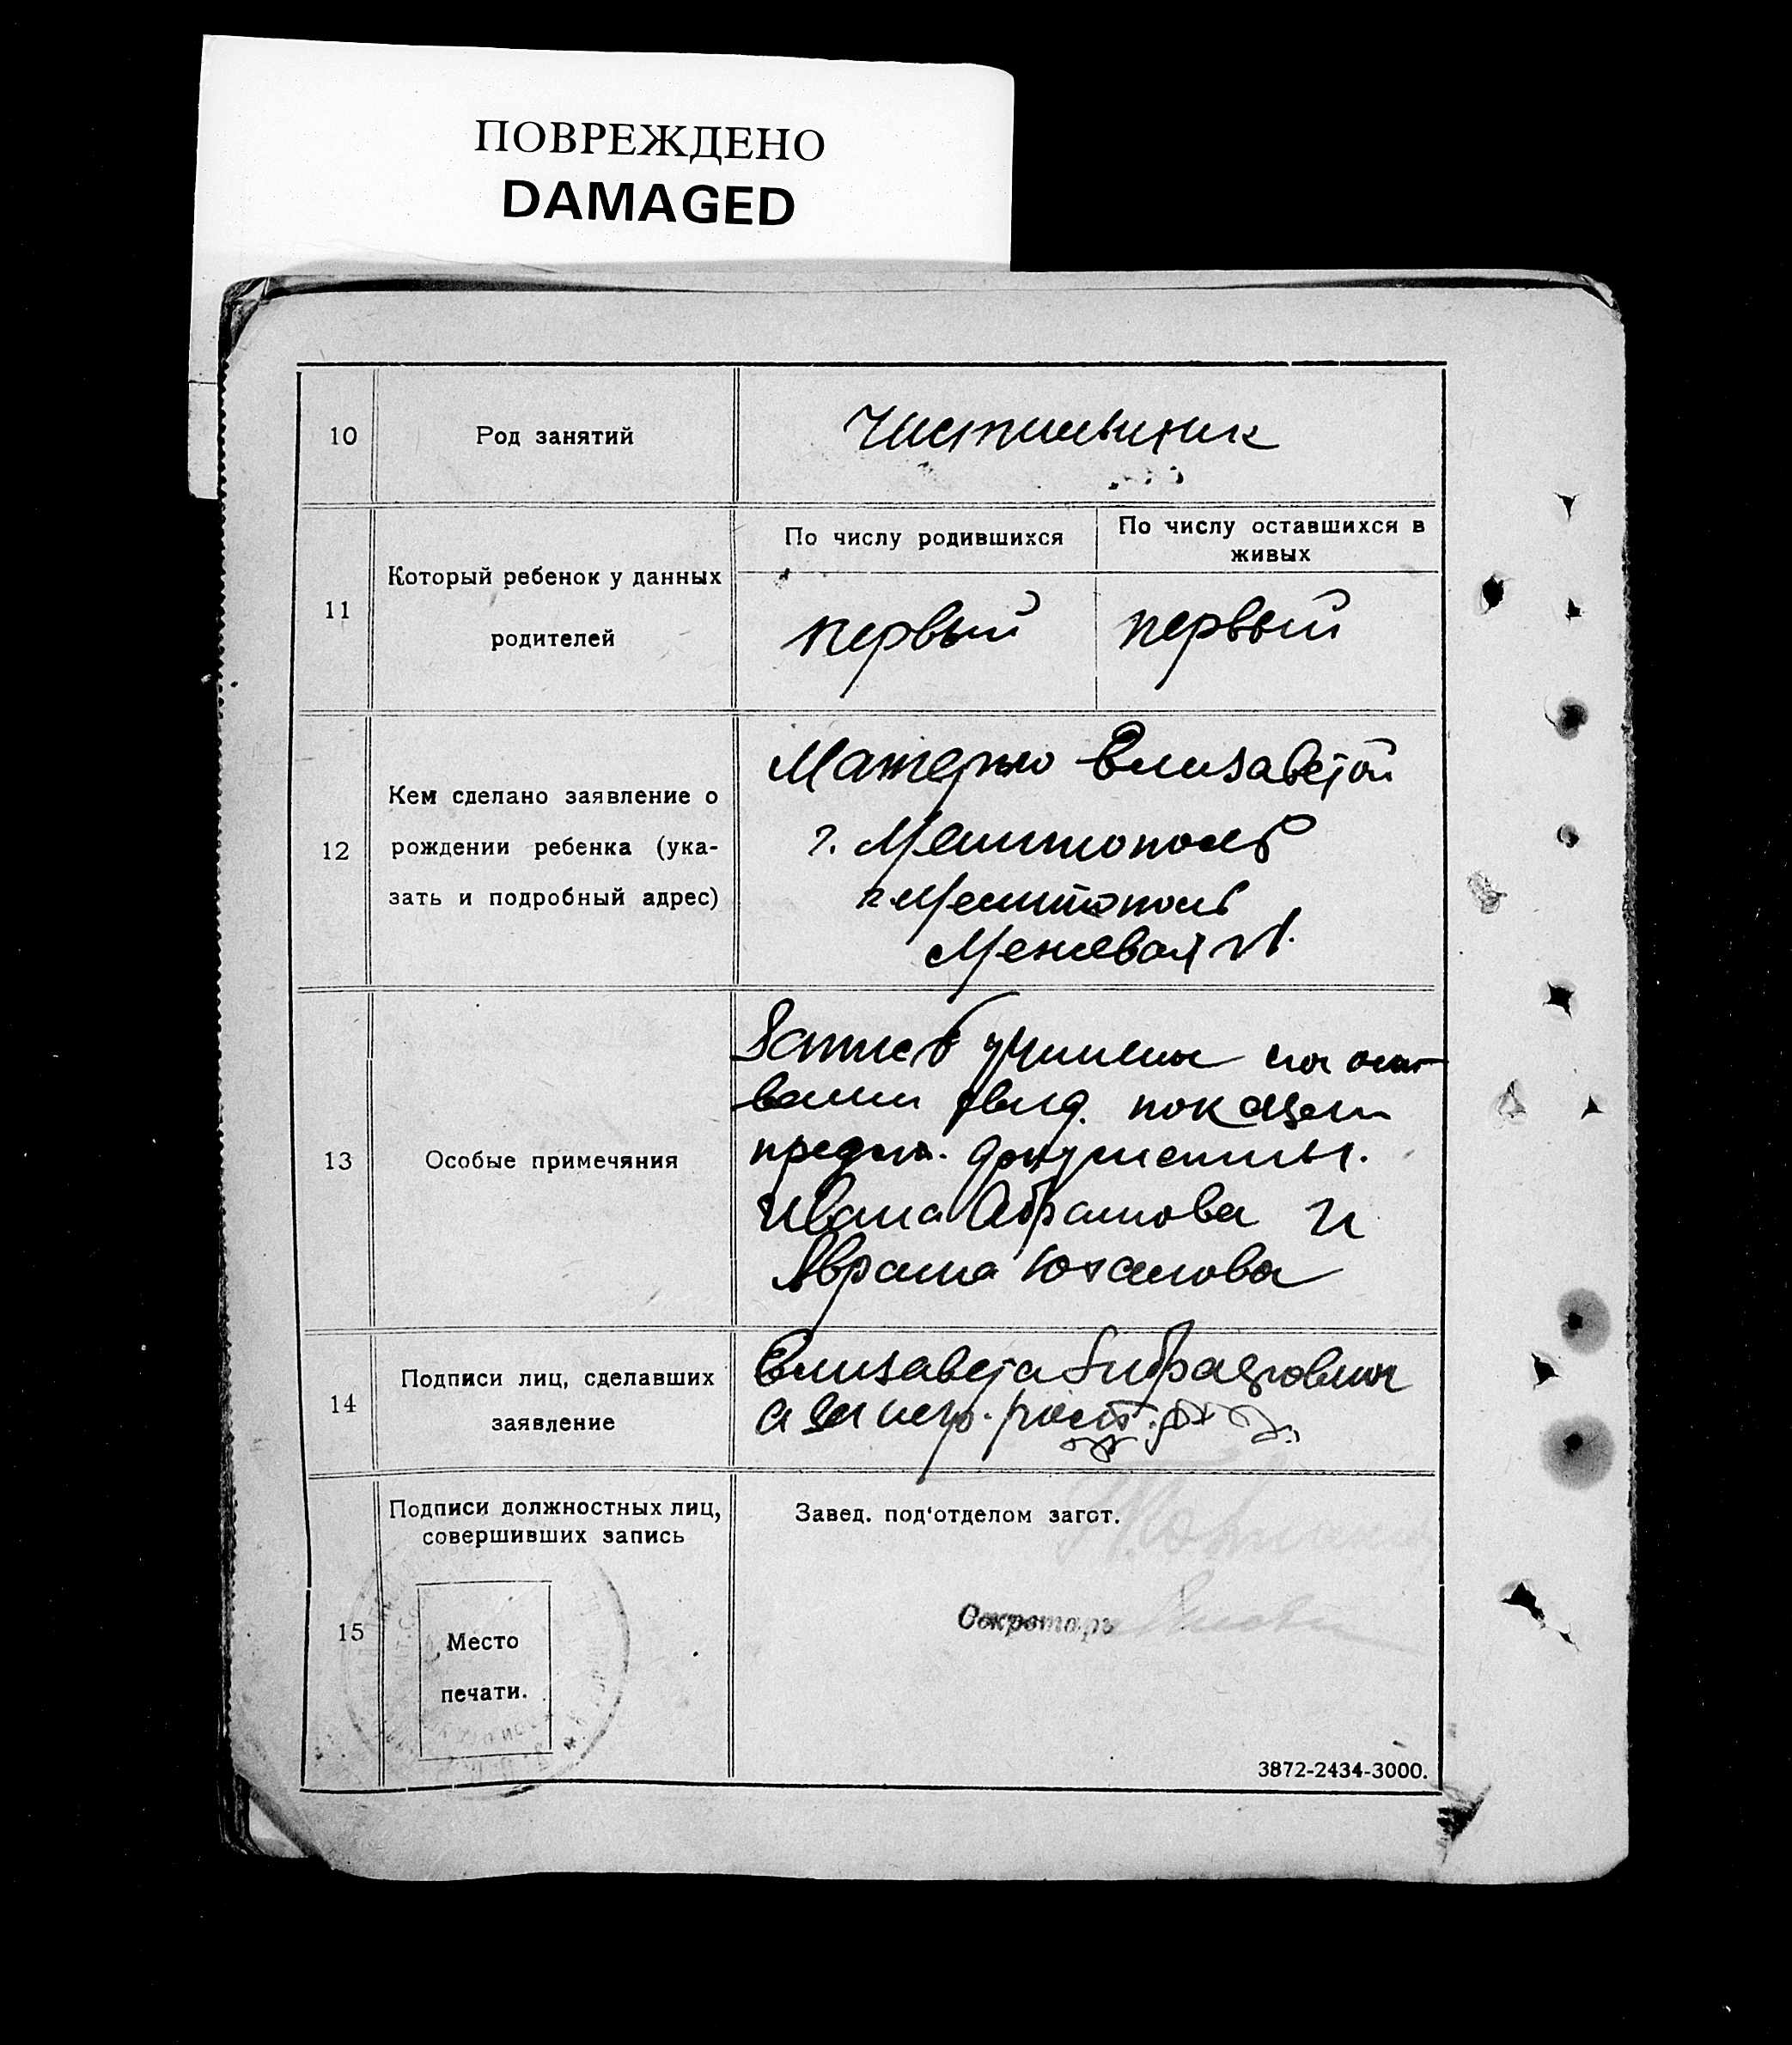 ПОВРЕЖДЕНО
DAMAGED
10
Род занятий
Чистильщик
11
Который ребенок у данных
родителей
По числу родившихся
По числу оставшихся в
живых
первый
первый
12
Кем сделано заявление о
рождении ребенка (ука-
зать и подробный адрес)
Матерью Елизаветой
г. Мелитополь
г. Мелитополь
Межевая
13
Особые примечяния
Запись учинена на осно-
вании свид. показаний
предст. документы.
Ивана Абрамова и
Аврама Юханова
14
Подписи лиц, сделавших
заявление
Елизавета
а за негр.
15
Подписи должностных лиц,
совершивших запись
Место
печати.
Завед. под'отделом загст.
Секретарь
3872-2434-3000.